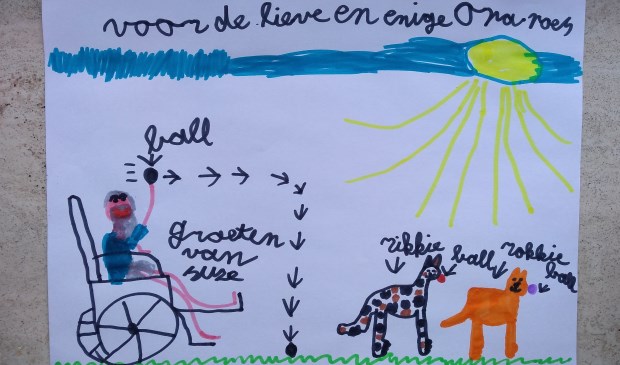 voor de lieve en enige Oma roes
ball
groeten
van
suze
rikkie
ball
rokkie
ball